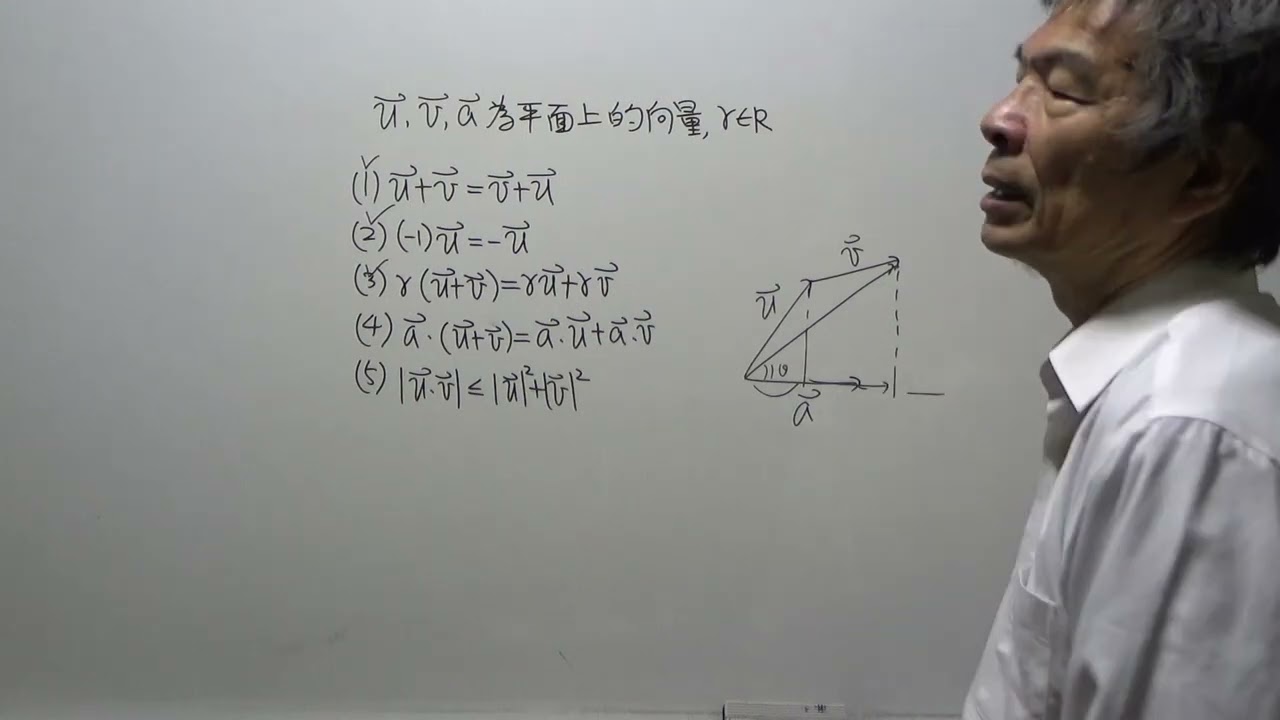 u⃗, v⃗, a⃗ 為平面上的向量, r∈R
(1) u⃗+v⃗=v⃗+u⃗
(2) (-1)u⃗=-u⃗
(3) r(u⃗+v⃗)=ru⃗+rv⃗
(4) a⃗·(u⃗+v⃗)=a⃗·u⃗+a⃗·v⃗
(5) |u⃗·v⃗|≤|u⃗|²+|v⃗|²
v⃗
u⃗
θ
a⃗